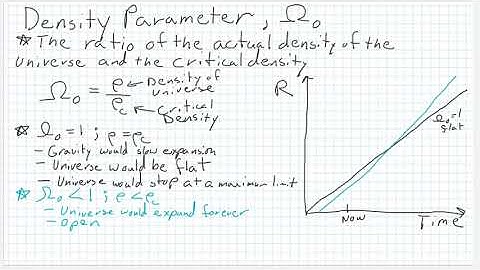 Density Parameter, Ω₀
* The ratio of the actual density of the
universe and the critical density
Ω₀ = ρ/ρc
← Density of
universe
← Critical
Density
* Ω₀ = 1 ; ρ = ρc
- Gravity would slow expansion
- Universe would be flat
- Universe would stop at a maximum limit
* Ω₀ < 1 ; ρ < ρc
- Universe would expand forever
- Open
R
Ω₀=1
flat
Now
Time